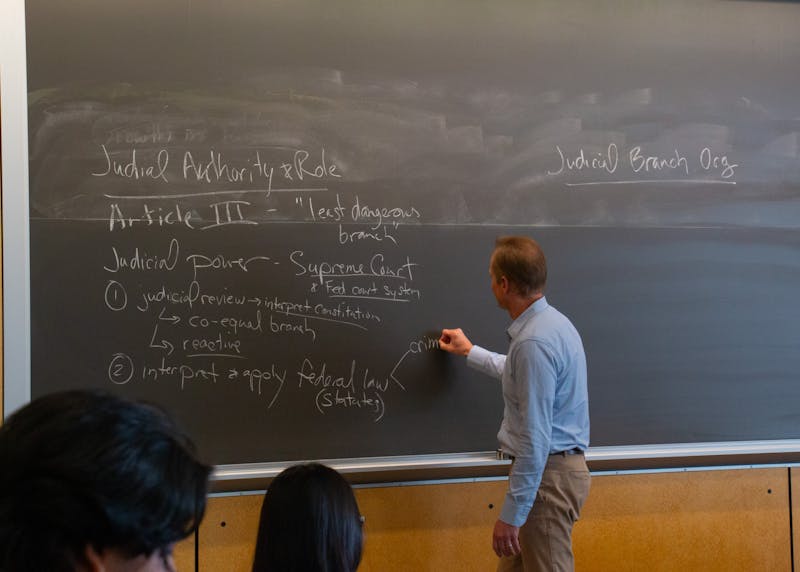 Judical Authority & Role
Article III - "least dangerous
branch"
Judicial power - Supreme Court
& Fed court system
① judicial review → interpret constitution
↳ co-equal branch
↳ reactive
② interpret & apply federal law
(statutes)
crim
Judicial Branch Org